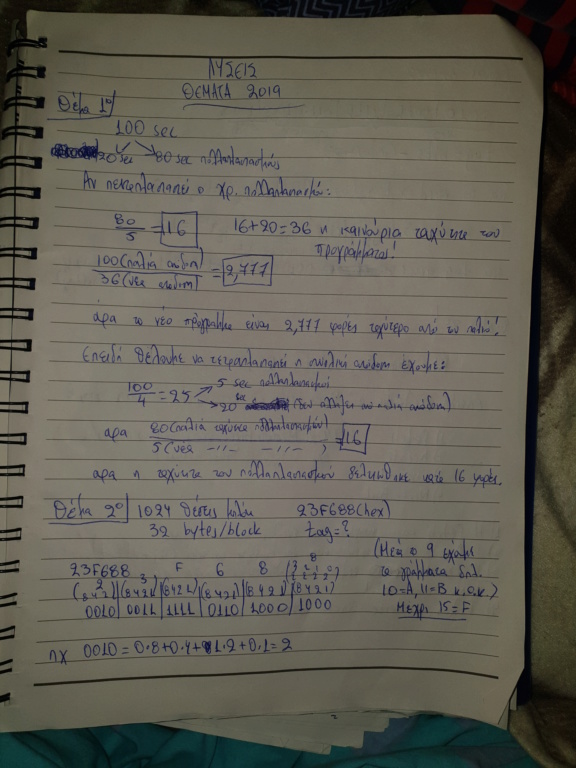 ΛΥΣΕΙΣ
ΘΕΜΑΤΑ 2019
Θέμα 1º
100 sec
20 sec 80 sec πολλαπλασιασμός
Αν πενταπλασιαστεί ο χρ. πολλαπλασιασμού:
80/5 = 16 16+20=36 η καινούρια ταχύτητα του
προγράμματος!
100 (παλιά απόδοση)/36 (νέα απόδοση) = 2,777
άρα το νέο πρόγραμμα είναι 2,777 φορές ταχύτερο από το παλιό!
Επειδή θέλουμε να τετραπλασιαστεί η συνολική απόδοση έχουμε:
100/4 = 25 5 sec πολλαπλασιασμού
20 sec (δεν αλλάζει από παλιά απόδοση)
αρα 80 (παλιά ταχύτητα πολλαπλασιασμού)/5 (νέα -//- -//- ) = 16
αρα η ταχύτητα του πολλαπλασιασμού βελτιώθηκε κατά 16 φορές.
Θέμα 2º 1024 θέσεις 23F688 (hex)
32 bytes/block tag=?
(Μετά το 9 έχουμε
τα γράμματα δηλ.
10=A, 11=B κ.ο.κ.)
Μέχρι 15=F
23F688 F 6 8 8
2 3
(8421) (8421) (8421) (8421) (8421) (8421)
0010 0011 1111 0110 1000 1000
πχ 0010 = 0.8+0.4+1.2+0.1=2